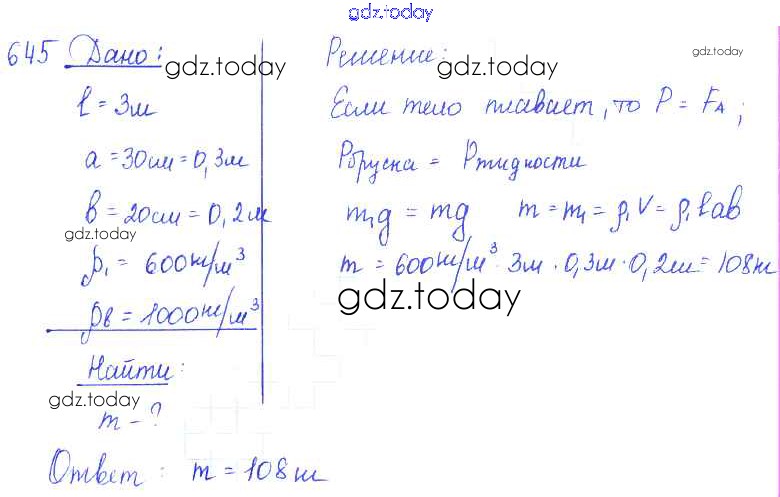 gdz.today
645 Дано:
gdz.today
l = 3м
a = 30см = 0,3м
b = 20см = 0,2м
gdz.today
ρ₁ = 600кг/м³
ρв = 1000кг/м³
Найти:
gdz.today
m - ?
Ответ: m = 108кг
Решение:
gdz.today
gdz.today
Если тело плавает, то P = FA;
Pбруска = Pжидкости
m₁g = mg m = m₁ = ρ₁V = ρ₁lab
m = 600кг/м³ · 3м · 0,3м · 0,2м = 108кг
gdz.today